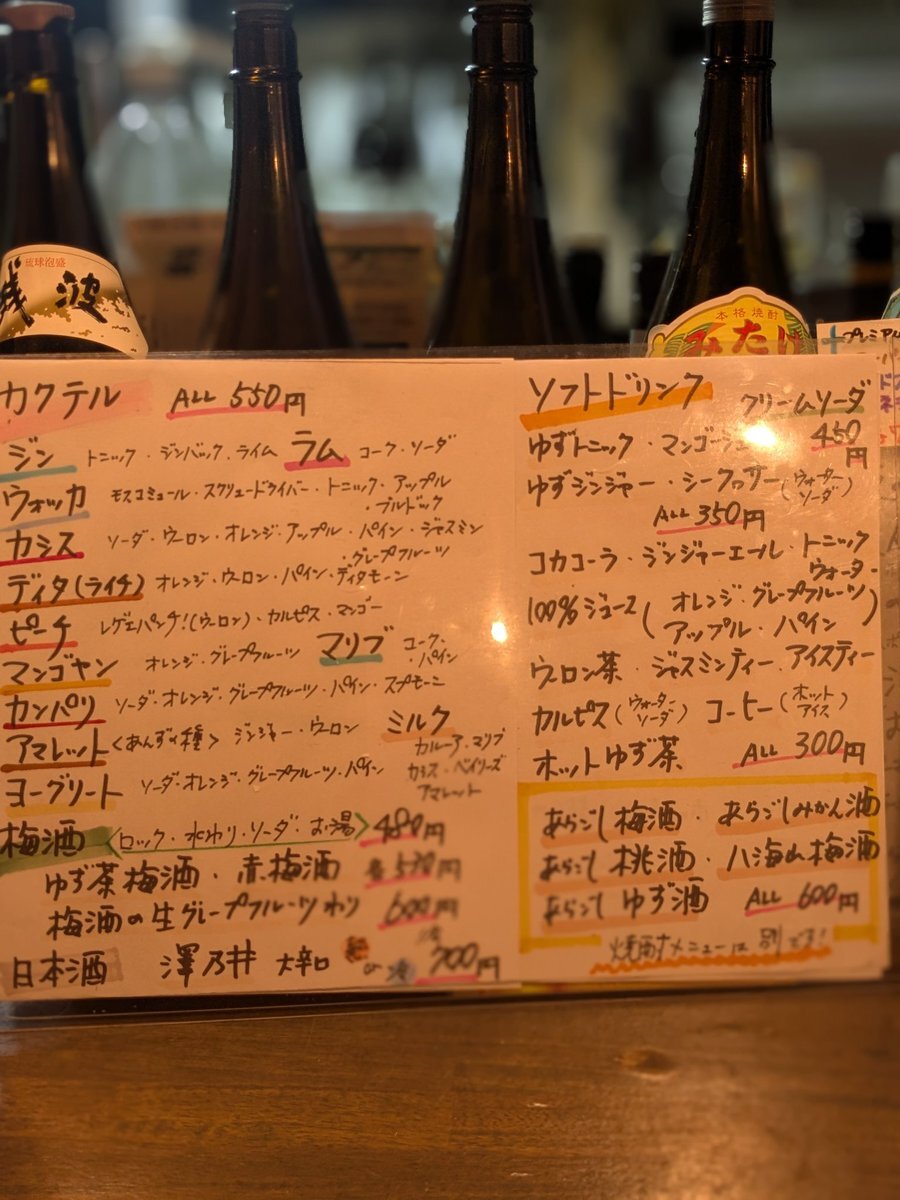 琉球泡盛
残波
本格焼酎
みたけ
プレミアム
カクテル ALL 550円
ジン トニック・ジンバック・ライム ラム コーク・ソーダ
ウォッカ モスコミュール・スクリュードライバー・トニック・アップル
・ブルドック
カシス ソーダ・ウーロン・オレンジ・アップル・パイン・ジャスミン
・グレープフルーツ
ディタ(ライチ) オレンジ・ウーロン・パイン・ディタモーニ
ピーチ レゲエパンチ!(ウーロン)・カルピス・マンゴー
マリブ コーク・
・パイン
マンゴヤン オレンジ・グレープフルーツ
カンパリ ソーダ・オレンジ・グレープフルーツ・パイン・スプモーニ
アマレット<あんずの種> ジンジャー・ウーロン
ミルク
カルーア・マリブ
カシス・ベイリーズ
アマレット
ヨーグリート ソーダ・オレンジ・グレープフルーツ・パイン
梅酒 <ロック・水わり・ソーダ・お湯> 480円
ゆず茶梅酒・赤梅酒 各530円
梅酒の生グレープフルーツわり 600円
日本酒 澤乃井 大辛口 or 冷 700円
ソフトドリンク クリームソーダ
450円
ゆずトニック・マンゴー
ゆずジンジャー・シークヮサー(ウォーター
ソーダ)
ALL 350円
コカコーラ・ジンジャーエール・トニック
ウォーター
100%ジュース(オレンジ・グレープフルーツ
アップル・パイン)
ウーロン茶・ジャスミンティー・アイスティー
カルピス(ウォーター
ソーダ) コーヒー(ホット
アイス)
ホットゆず茶 ALL 300円
あらごし梅酒・あらごしみかん酒
あらごし桃酒・八海山梅酒
あらごしゆず酒 ALL 600円
焼酎メニューは別です!